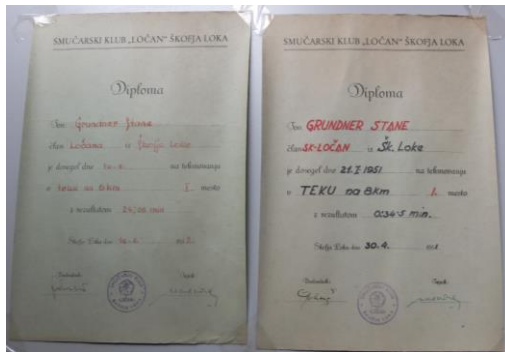 SMUČARSKI KLUB „LOČAN“ ŠKOFJA LOKA
Diploma
Tov. Grundner Stane
član Ločana iz Škofje Loke
je dosegel dne na tekmovanju
v teku na 8 km I. mesto
z rezultatom min
Škofja Loka dne
Predsednik: Tajnik:
SMUČARSKI KLUB „LOČAN“ ŠKOFJA LOKA
Diploma
Tov. GRUNDNER STANE
član SK-LOČAN iz Šk. Loke
je dosegel dne 21. I. 1951 na tekmovanju
v TEKU na 8km I. mesto
z rezultatom 0:34·5 min.
Škofja Loka dne 30. 4. 1951
Predsednik: Tajnik: